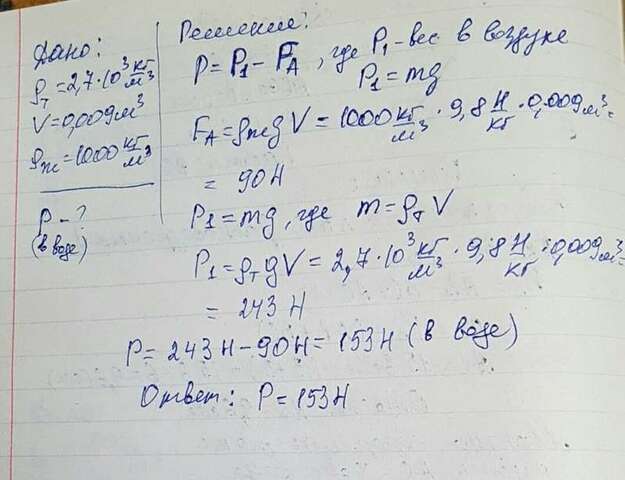 Дано:
ρт = 2,7·10³ кг/м³
V = 0,009 м³
ρж = 1000 кг/м³
P - ?
(в воде)
Решение:
P = P₁ - F_A, где P₁ - вес в воздухе
P₁ = mg
F_A = ρжgV = 1000 кг/м³ · 9,8 Н/кг · 0,009 м³ =
= 90 Н
P₁ = mg, где m = ρт V
P₁ = ρт gV = 2,7·10³ кг/м³ · 9,8 Н/кг · 0,009 м³ =
= 243 Н
P = 243 Н - 90 Н = 153 Н (в воде)
Ответ: P = 153 Н